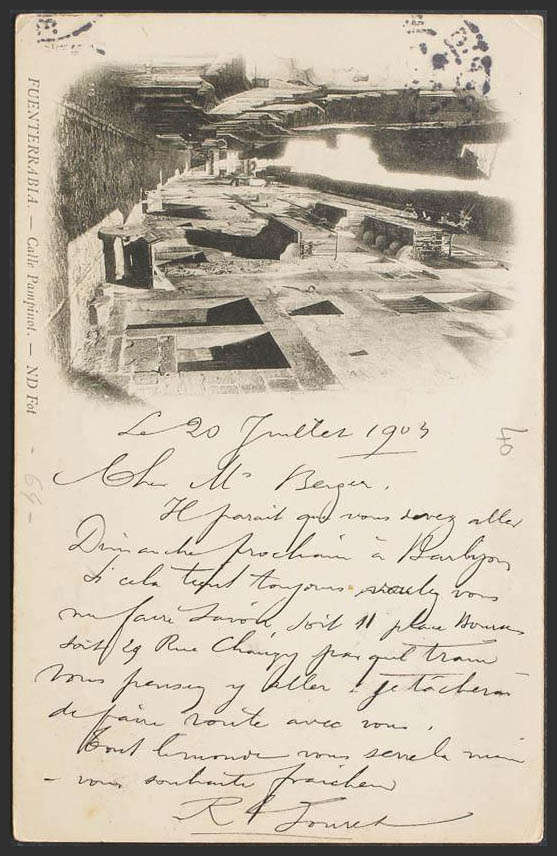 FUENTERRABIA. — Calle Pampinot. — ND Fot
- 64 -
40
Le 20 Juillet 1903
Cher Mr Berger.
Il parait que vous devez aller
Dimanche prochain à Barbizon
Si cela tient toujours voulez vous
me faire savoir soit 11 place
soit 29 Rue par quel train
Vous pensez y aller je tâcherai
de faire route avec vous.
Tout le monde vous serre la main
- vous souhaite fraicheur
R